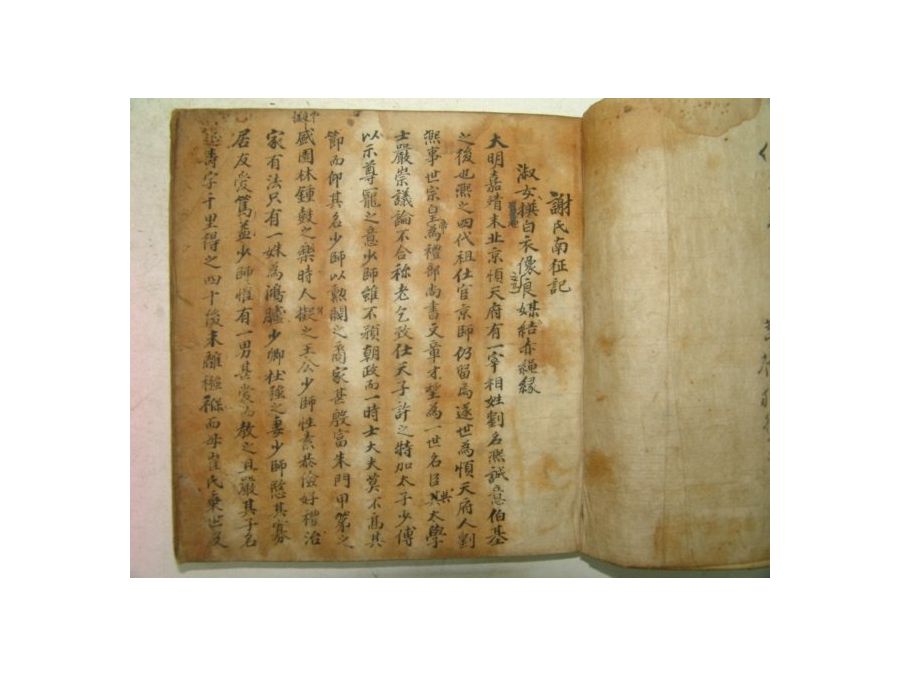 謝氏南征記
淑女撰白衣像 媒結赤繩緣
大明嘉靖末北京順天府有一宰相姓劉名熙誠意伯基
之後也熙之四代祖仕官京師仍留居遂世為順天府人劉
熙事世宗皇帝為禮部尚書文章才望為一世名臣與太學
士嚴崇議論不合称老乞致仕天子許之特加太子少傅
以示尊寵之意少師雖不預朝政而一時士大夫莫不高其
節而仰其名少師以勲閥之裔家甚殷富朱門甲第之
盛園林鍾鼓之樂時人擬之王公少師性素恭儉好禮治
家有法只有一妹為鴻臚少卿杜強之妻少師愍其寡
居友愛篤益少師惟有一男甚愛而教之且嚴其子名
延壽字千里得之四十後未離襁褓而母崔氏棄世及